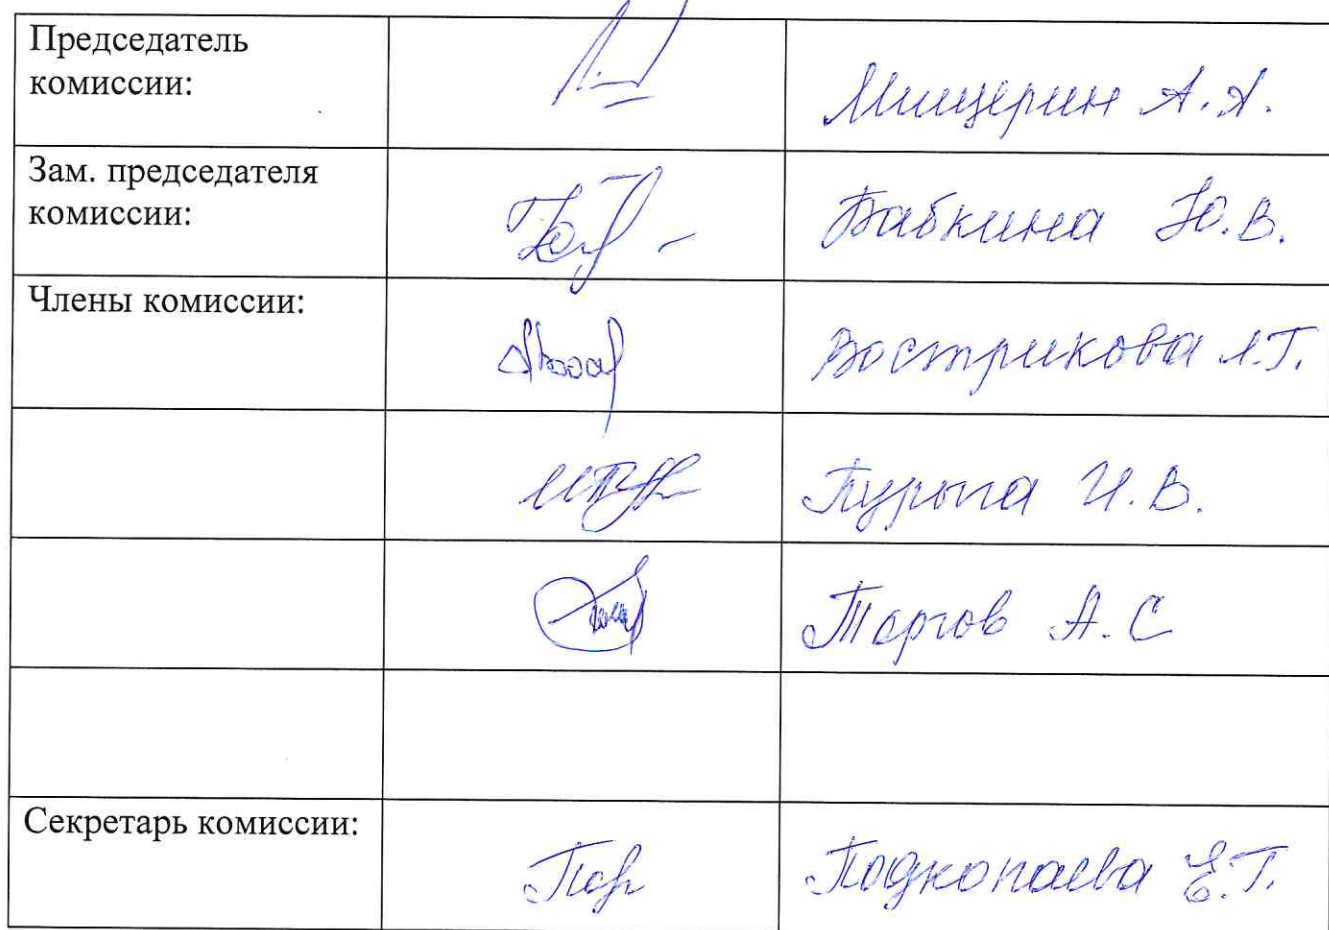 Председатель
комиссии:
Мищерин А.А.
Зам. председателя
комиссии:
Бабкина Ю.В.
Члены комиссии:
Вострикова Л.Г.
Пурыга И.В.
Торгов А.С
Секретарь комиссии:
Подкопаева Е.Г.